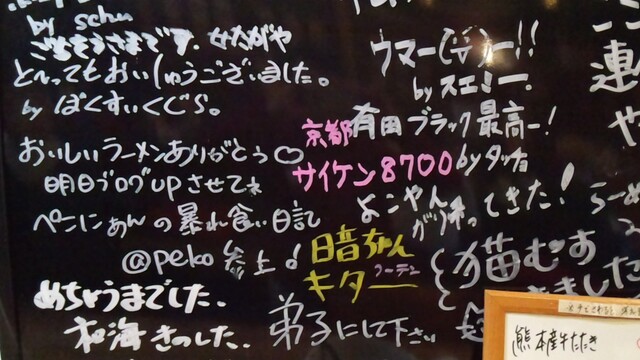 by schu
ごちそうさまです。
とってもおいしゅうございました。
by ばくすいくじら。
おいしいラーメンありがとう♡
明日ブログUPさせてネ
ぺこにゃんの暴れ食い日記
@peko 参上!
めちゃうまでした。
きました。
ウマー(´▽`)ー!!
by スエミー。
京都
有田ブラック最高ー!
サイケン8700
byタッチョ
よこやんが
帰ってきた!
暗音ちゃん
キター
弟子にして下さい
連
や
らーめ
猫むす
きました
熊本産牛たたき